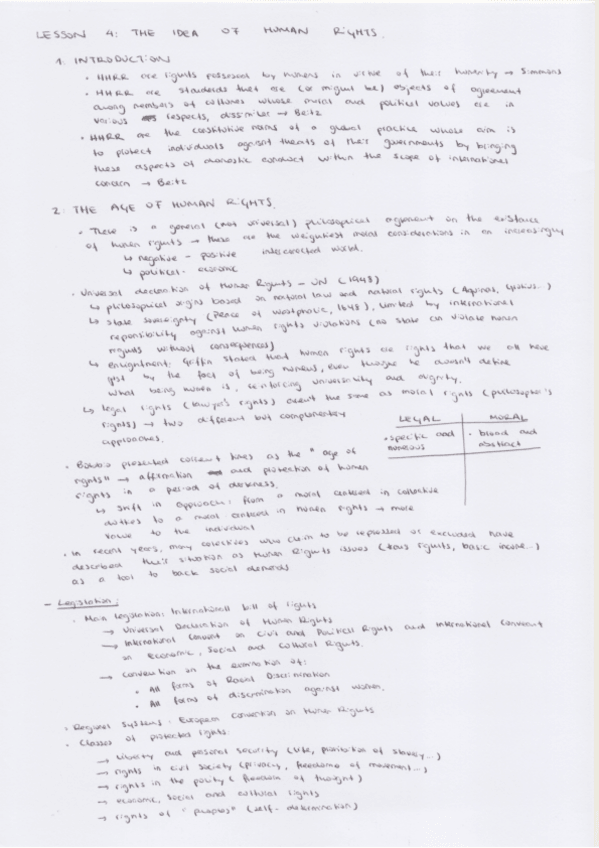 LESSON 4: THE IDEA OF HUMAN RIGHTS.
1. INTRODUCTION
• HHRR are rights possessed by humans in virtue of their humanity → Simmons
• HHRR are standards that are (or might be) objects of agreement
among members of cultures whose moral and political values are in
various respects, dissimilar → Beitz
• HHRR are the constitutive norms of a global practice whose aim is
to protect individuals against threats of their governments by bringing
these aspects of domestic conduct within the scope of international
concern → Beitz
2. THE AGE OF HUMAN RIGHTS.
• There is a general (not universal) philosophical argument on the existence
of human rights → these are the weightiest moral considerations in an increasingly
↳ negative - positive interconnected world.
↳ political - economic
• Universal declaration of Human Rights - UN (1948)
↳ philosophical origins based on natural law and natural rights (Aquinas, Grotius...)
↳ state sovereignty (Peace of Westphalia, 1648), limited by international
responsibility against human rights violations (no state can violate human
rights without consequences)
↳ enlightment: Griffin stated that human rights are rights that we all have
just by the fact of being humans, even though he doesn't define
what being human is, reinforcing universality and dignity.
↳ legal rights (lawyer's rights) aren't the same as moral rights (philosopher's
rights) → two different but complementary
approaches.
LEGAL MORAL
• specific and • broad and
numerous abstract
• Bobbio presented current times as the "age of
rights" → affirmation and protection of human
rights in a period of darkness.
↳ shift in approach: from a moral centered in collective
duties to a moral centered in human rights → more
value to the individual
• In recent years, many colectives who claim to be repressed or excluded have
described their situation as Human Rights issues (trans rights, basic income...)
as a tool to back social demands
- Legislation:
• Main legislation: International bill of rights
→ Universal Declaration of Human Rights
→ International Covenant on Civil and Political Rights and International Covenant
on Economic, Social and Cultural Rights.
→ Convention on the elimination of:
• All forms of Racial Discrimination
• All forms of discrimination against women.
• Regional systems: European Convention on Human Rights
• Classes of protected rights:
→ liberty and personal security (life, prohibition of slavery...)
→ rights in civil society (privacy, freedoms of movement...)
→ rights in the polity (freedom of thought)
→ economic, social and cultural rights
→ rights of "peoples" (self-determination)